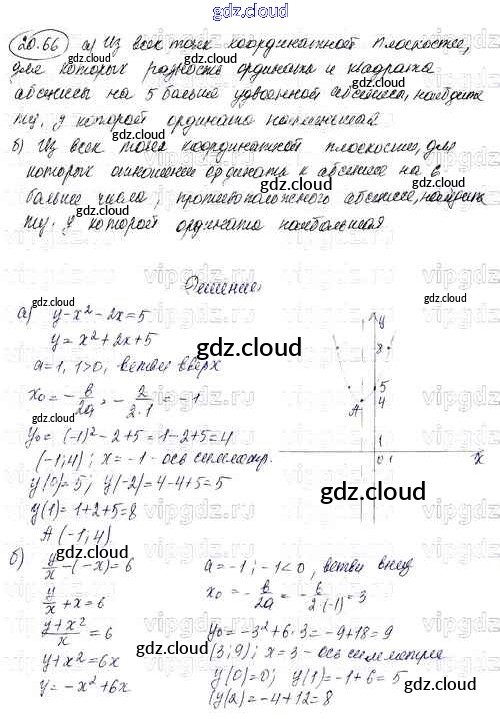 gdz.cloud
20.66 а) Из всех точек координатной плоскости,
для которых разность ординаты и квадрата
абсциссы на 5 больше удвоенной абсциссы, найдите
ту, у которой ордината наименьшая
б) Из всех точек координатной плоскости, для
которых отношение ординаты к абсциссе на 6
больше числа, противоположного абсциссе, найдите
ту, у которой ордината наибольшая
Решение
а) y-x²-2x=5
y=x²+2x+5
a=1, 1>0, ветви вверх
x₀=-b/2a, -2/2·1=-1
y₀=(-1)²-2+5=1-2+5=4
(-1;4); x=-1-ось симметр.
y(0)=5; y(-2)=4-4+5=5
y(1)=1+2+5=8
A(-1;4)
y
8
5
A
4
1
0 1
x
б) y/x-(-x)=6
y/x+x=6
y+x²/x=6
y+x²=6x
y=-x²+6x
a=-1; -1<0, ветви вниз
x₀=-b/2a=-6/2·(-1)=3
y₀=-3²+6·3=-9+18=9
(3;9); x=3-ось симметрии
y(0)=0; y(1)=-1+6=5
y(2)=-4+12=8
gdz.cloud